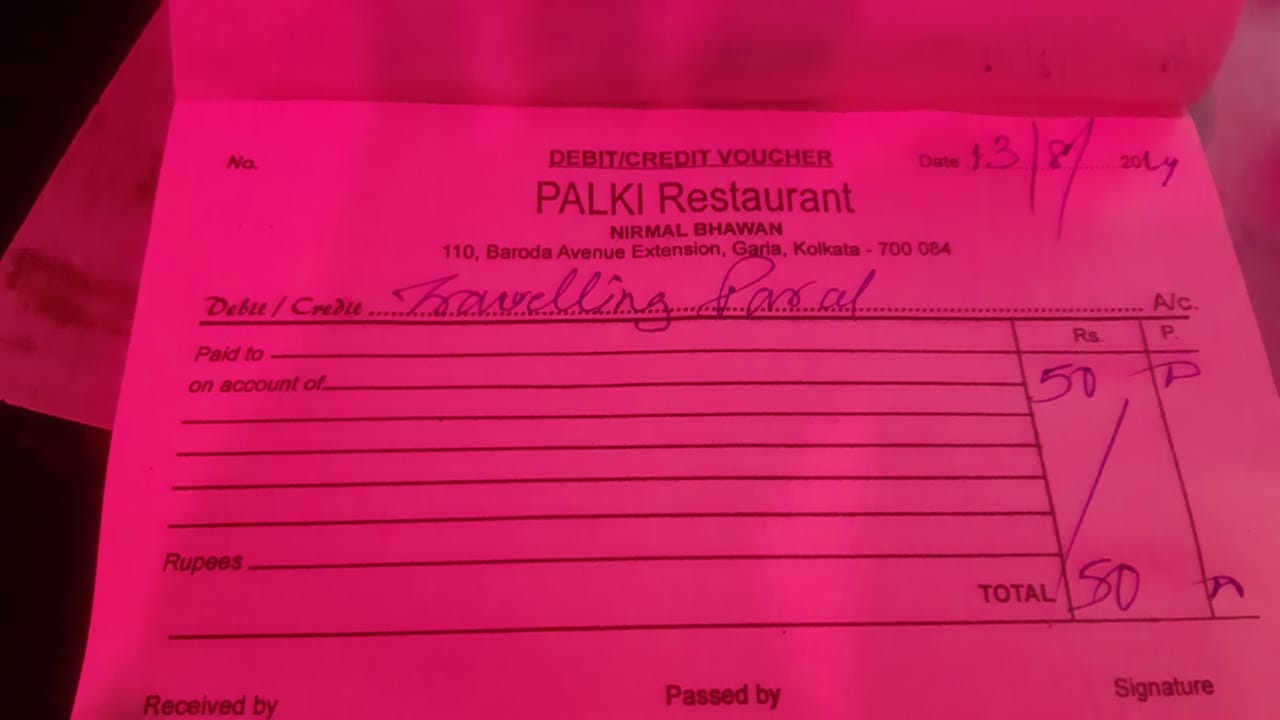 No. DEBIT/CREDIT VOUCHER Date 13/8/2024
PALKI Restaurant
NIRMAL BHAWAN
110, Baroda Avenue Extension, Garia, Kolkata - 700 084
Debit / Credit Travelling Paral A/c.
Rs. P.
Paid to
on account of 50
Rupees
TOTAL 50
Received by Passed by Signature